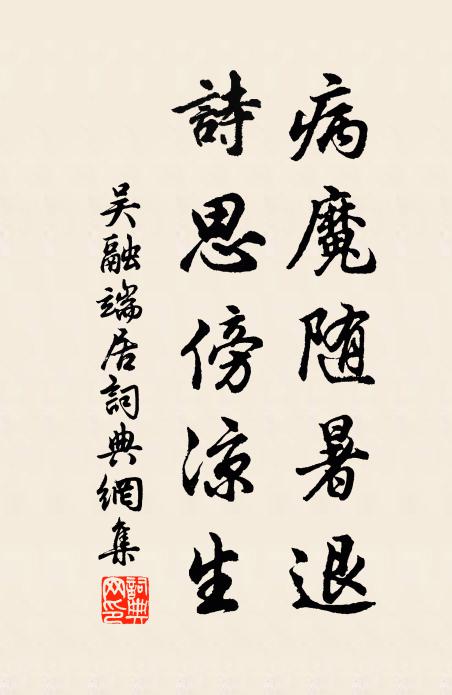 病魔随暑退
詩思傍涼生
吴融端居詞典網集
詞典网印